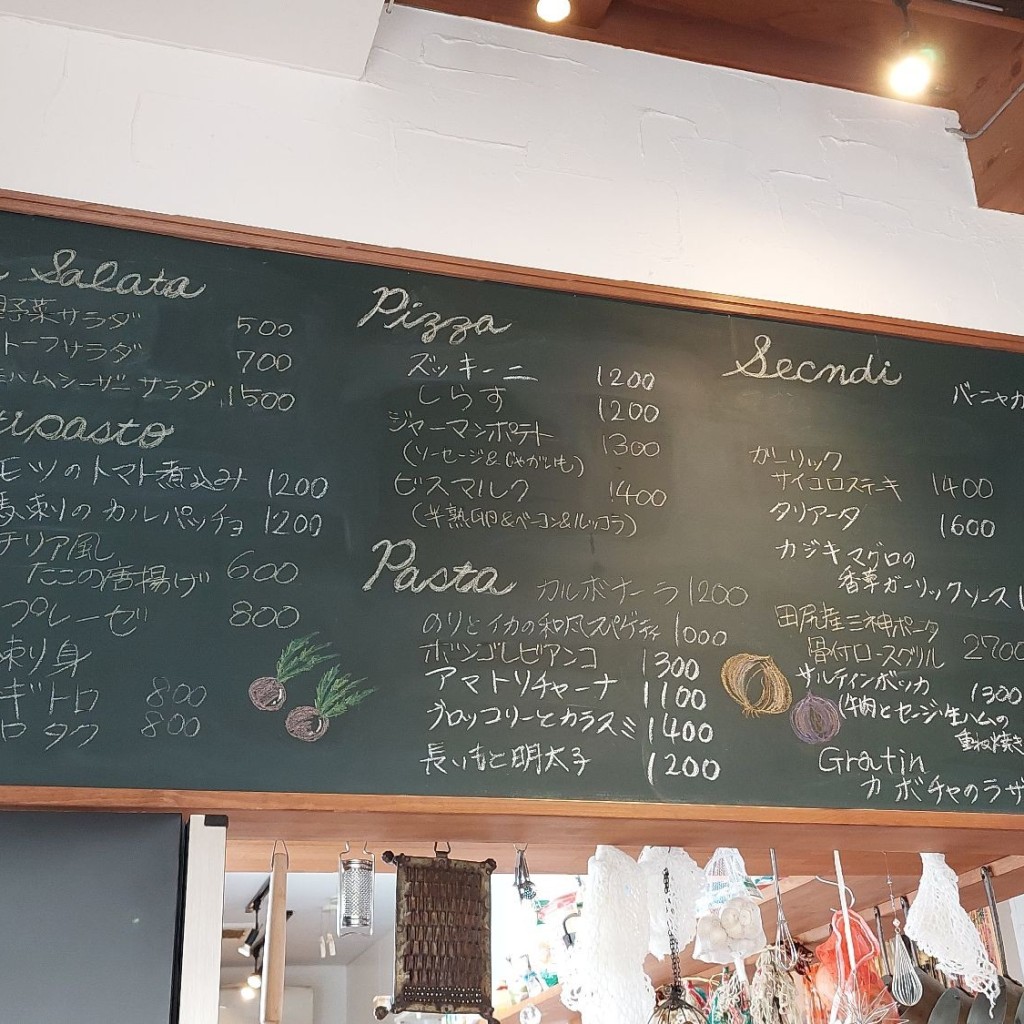 Salata
野菜サラダ 500
トーフサラダ 700
ハムシーザーサラダ 1500
ipasto
モツのトマト煮込み 1200
馬刺のカルパッチョ 1200
チリア風
たこの唐揚げ 600
プレーゼ 800
刺り身
ギトロ 800
ロタク 800
Pizza
ズッキーニ 1200
しらす 1200
ジャーマンポテト 1300
(ソーセージ&じゃがいも)
ビスマルク 1400
(半熟卵&ベーコン&ルッコラ)
Pasta
カルボナーラ 1200
のりとイカの和風スパゲティ 1000
ボンゴレビアンコ 1300
アマトリチャーナ 1100
ブロッコリーとカラスミ 1400
長いもと明太子 1200
Secndi
バーニャカ
ガーリック
サイコロステーキ 1400
タリアータ 1600
カジキマグロの
香草ガーリックソース
田尻産三神ポーク
骨付ロースグリル 2700
サルティンボッカ 1300
(牛肉とセージ・生ハムの
重ね焼き
Gratin
カボチャのラザ